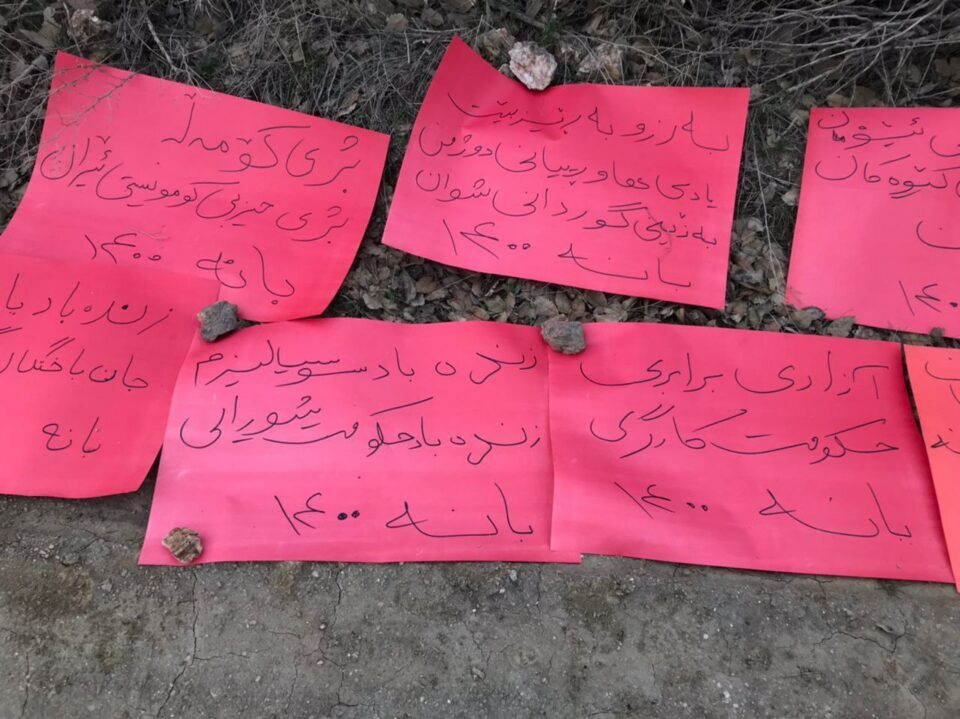 بژی کۆمەڵە
بژی حیزبی کومونیستی ئێران
بانه ۱۴۰۰
بەرز و بەڕێز بێت
یادی هاوڕێیانی
گوردانی شوان
بانه ۱۴۰۰
ئێوەی
کێوەکان
۱۴۰
زنده باد یا
جان باختگا
بانه
زنده باد سوسیالیزم
زنده باد حکومت شورائی
بانه ۱۴۰۰
آزادی برابری
حکومت کارگری
بانه ۱۴۰۰